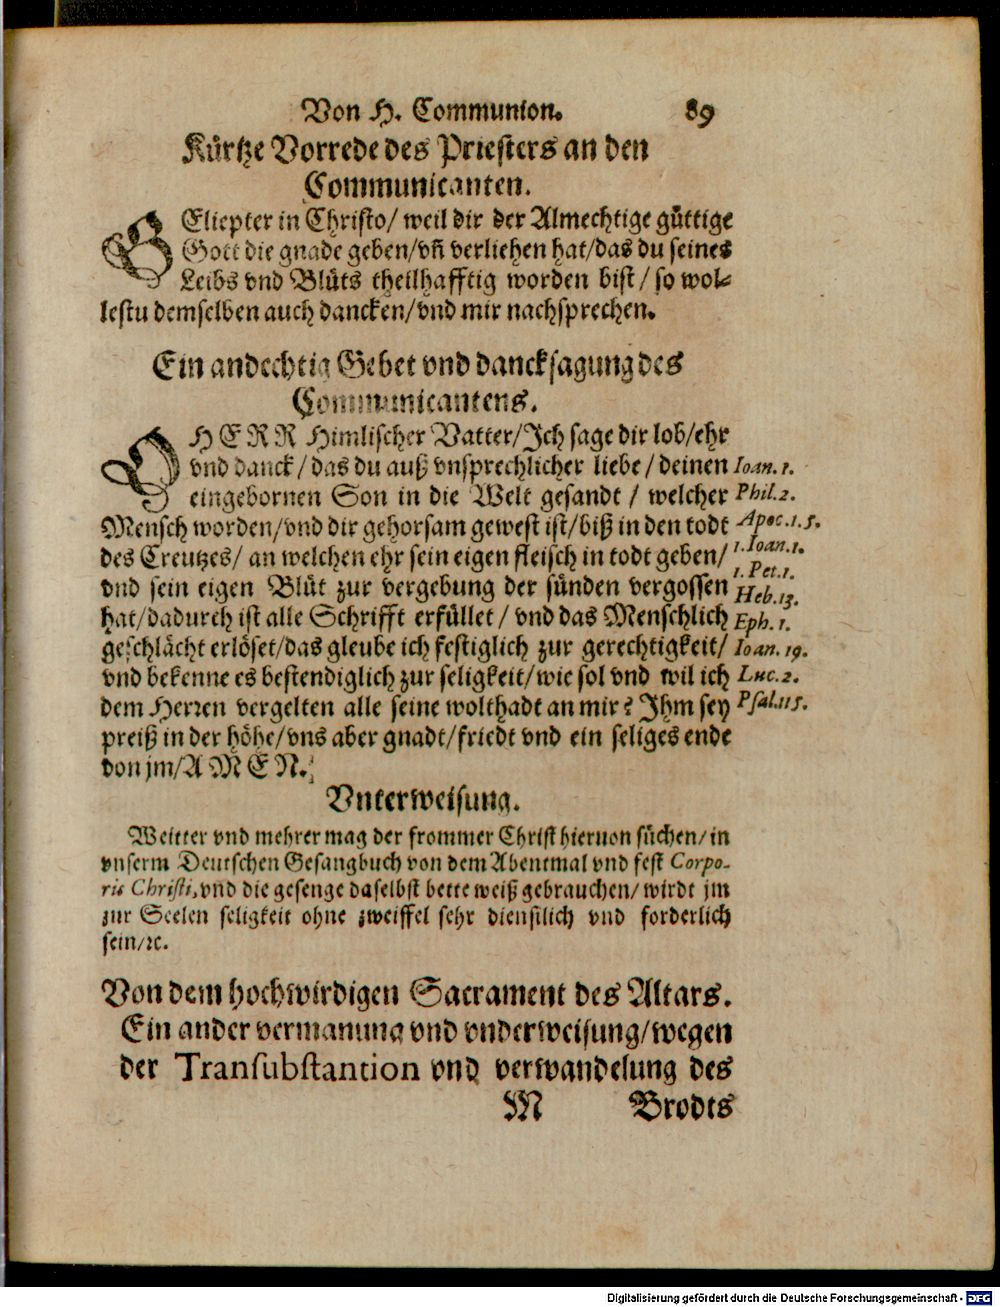 Von H. Communion. 89
Kürtze Vorrede des Priesters an den
Communicanten.
GEliepter in Christo/ weil dir der Almechtige güttige
Gott die gnade geben/vñ verliehen hat/das du seines
Leibs vnd Blůts theilhafftig worden bist/ so wol-
lestu demselben auch dancken/vnd mir nachsprechen.
Ein andechtig Gebet vnd dancksagung des
Communicantens.
O HERR Himlischer Vatter/Ich sage dir lob/ehr
vnd danck/das du auß vnsprechlicher liebe/deinen Ioan. 1.
eingebornen Son in die Welt gesandt / welcher Phil. 2.
Mensch worden/vnd dir gehorsam gewest ist/biß in den todt Apoc. 1. 5.
des Creutzes/ an welchen ehr sein eigen fleisch in todt geben/ 1. Ioan. 1.
1. Pet. 1.
vnd sein eigen Blůt zur vergebung der sünden vergossen Heb. 13.
hat/dadurch ist alle Schrifft erfüllet/ vnd das Menschlich Eph. 1.
geschlächt erlöset/das gleube ich festiglich zur gerechtigkeit/ Ioan. 19.
vnd bekenne es bestendiglich zur seligkeit/wie sol vnd wil ich Luc. 2.
dem Herren vergelten alle seine wolthadt an mir? Ihm sey Psal. 115.
preiß in der höhe/vns aber gnadt/friedt vnd ein seliges ende
von jm/AMEN.
Vnterweisung.
Weitter vnd mehrer mag der frommer Christ hieruon sůchen/in
vnserm Deutschen Gesangbuch von dem Abentmal vnd fest Corpo-
ris Christi, vnd die gesenge daselbst bette weiß gebrauchen/ wirdt jm
zur Seelen seligkeit ohne zweiffel sehr dienstlich vnd forderlich
sein/ꝛc.
Von dem hochwirdigen Sacrament des Altars.
Ein ander vermanung vnd vnderweisung/wegen
der Transubstantion vnd verwandelung des
M Brodts
Digitalisierung gefördert durch die Deutsche Forschungsgemeinschaft - DFG